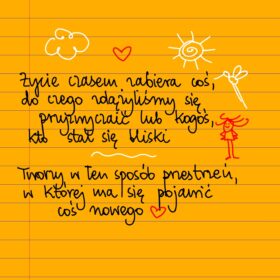 Życie czasem zabiera coś,
do czego zdążyliśmy się
przyzwyczaić lub kogoś,
kto stał się bliski
Tworzy w ten sposób przestrzeń,
w której ma się pojawić
coś nowego